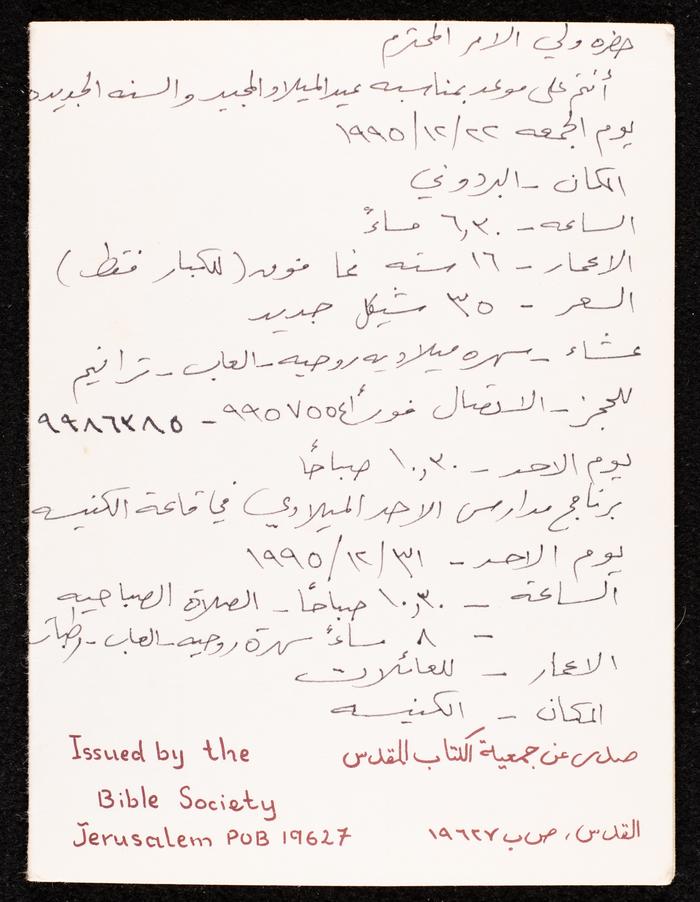 حضره ولي الامر المحترم
أنتم على موعد بمناسبه عيد الميلاد المجيد والسنه الجديده
يوم الجمعه ١٩٩٥/١٢/٢٢
المكان - البردوني
الساعه - ٦,٣٠ مساءً
الاعمار - ١٦ سنه فما فوق (للكبار فقط)
السعر - ٣٥ شيكل جديد
عشاء - سهره ميلاديه روحيه - العاب - ترانيم
للحجز - الاتصال فوراً ٩٩٥٧٥٥٤ - ٩٩٨٦٢٨٥
يوم الاحد - ١٠,٣٠ صباحًا
برنامج مدارس الاحد الميلادي في قاعة الكنيسه
يوم الاحد - ١٩٩٥/١٢/٣١
الساعة - ١٠,٣٠ صباحًا - الصلاة الصباحيه
- ٨ مساءً سهرة روحيه - العاب -
الاعمار - للعائلات
المكان - الكنيسه
صدر عن جمعية الكتاب المقدس
القدس، ص ب ١٩٦٢٧
Issued by the
Bible Society
Jerusalem POB 19627